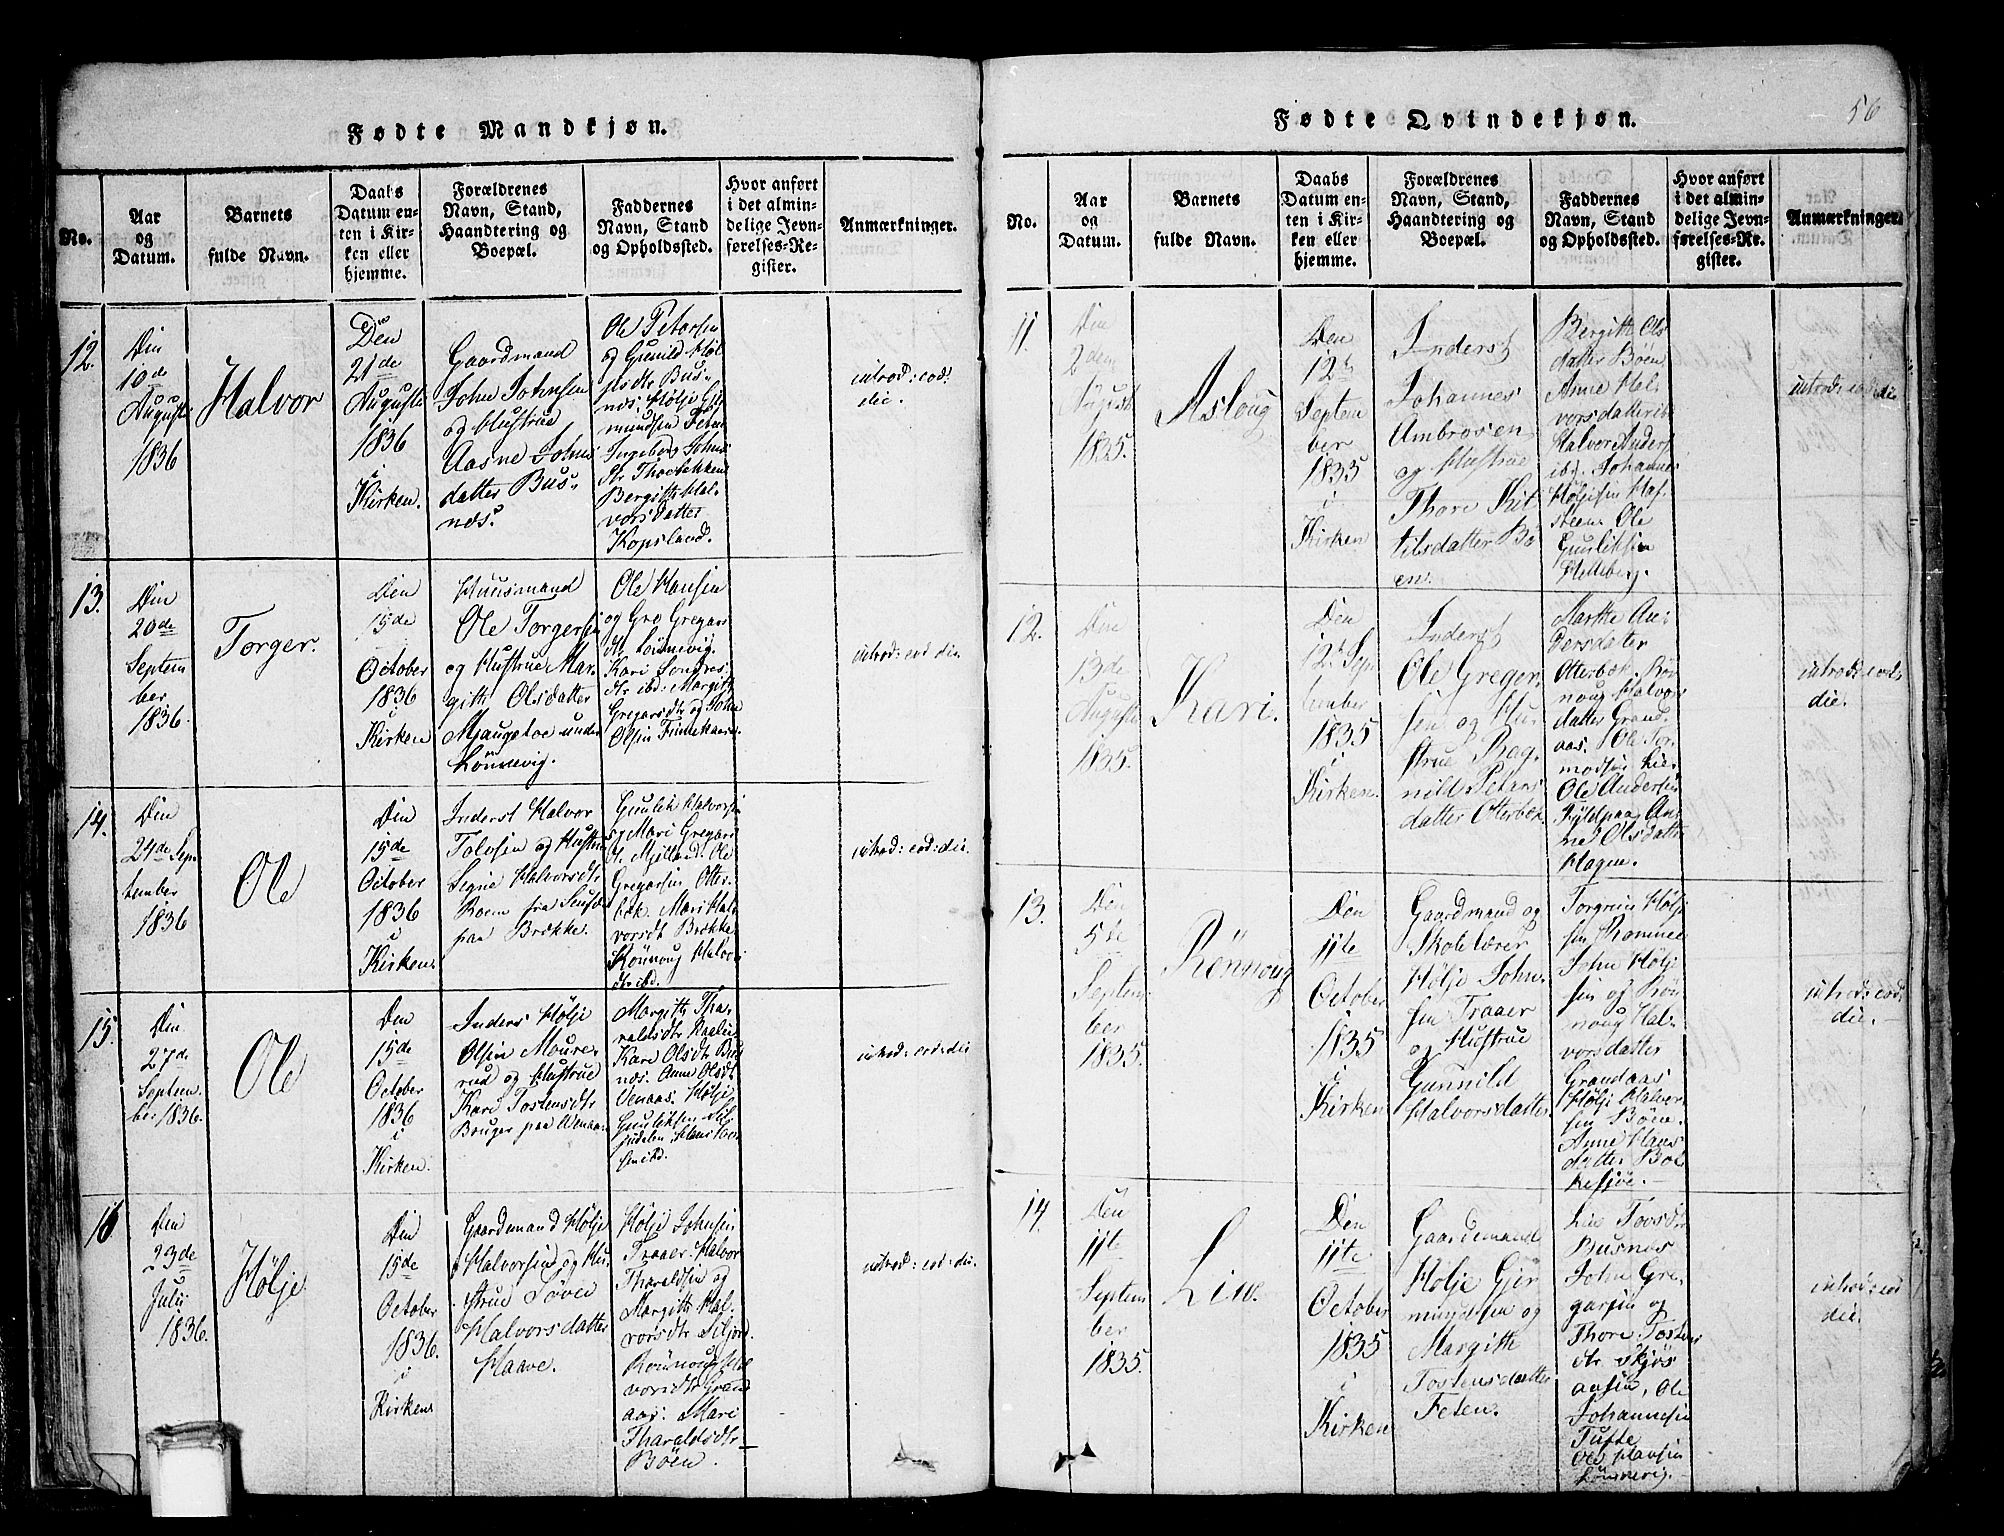 Fødte Mandkjøn.
No.
Aar
og
Datum.
Barnets
fulde Navn.
Daabs
Datum en-
ten i Kir-
ken eller
hjemme.
Forældrenes
Navn, Stand,
Haandtering og
Boepæl.
Faddernes
Navn, Stand
og Opholdssted.
Hvor anført
i det almin-
delige Jevn-
førelses-Re-
gister.
Anmærkninger.
12.
Den
10de
August
1836
Halvor
Den
21de
August
1836
i
Kirken.
Gaardmand
John Johnsen
og Hustrue
Aasne Johns
datter Bus-
næs.
Ole Petersen
og Gunild Høl
jesdtr Bus-
næs. Hølje Gjer
mundsen Feten
Ingebor Johns
dtr
Bergitte Hal
vorsdatter
Kopsland.
introd: eod:
die.
13.
Den
20de
Septem
ber
1836.
Torger.
Den
15de
October
1836
i
Kirken
Huusmand
Ole Torgersen
og Hustrue Mar
gitte Olsdatter
Mjaugetoe under
Lønnevig.
Ole Hansen
og Gro Gregars
dtr Lønnevig.
Kari Sondres
dtr ibd: Margitte
Gregarsdtr og John
Olsen Finnekaasa
introd: eod die.
14.
Den
24de Sep
tember
1836
Ole
Den
15de
October
1836
i
Kirken.
Inderst Halvor
Tolvsen og Hustru
Signe Halvorsdtr
Roem fra
paa Brække.
Gunlek Halvorsen
og Mari Gregars
dtr Mjelland. Ole
Gregarsen Otter
bæk. Mari Hal
vorsdt Brække
Rønnoug Halvors
dtr ibd.
introd: eod: die.
15.
Den
27de
Septem
ber 1836.
Ole
Den
15de
October
1836
i
Kirken.
Inders Hølje
Olsen Moure-
rud og Hustrue
Kari Tostensdtr
Bruger paa Venaas
Margitte Tha-
raldsdtr
Kari Olsdtr Bus
næs. Anne Olsdt
Venaas. Hølje
Gunleksen Sil
judalen. Hans
sen ibd.
introd: eod: die
16
Den
23de
Julii
1836.
Hølje
Den
15de
October
1836.
i
Kirken
Gaardmand Hølje
Halvorsen og Hu-
strue Løven
Halvorsdatter
Haave.
Hølje Johnsen
Traaer. Halvor
Tharaldsen og
Margitte Hal-
vorsdtr Siljord.
Rønnoug Hal
vorsdtr Grand
aas. Mari
Tharaldsdtr
Bøen.
introd: eod: die.
Fødte Qvindekjøn.
56
No.
Aar
og
Datum.
Barnets
fulde Navn.
Daabs
Datum en-
ten i Kir-
ken eller
hjemme.
Forældrenes
Navn, Stand,
Haandtering og
Boepæl.
Faddernes
Navn, Stand
og Opholdssted.
Hvor anført
i det almin-
delige Jevn-
førelses-Re-
gister.
Anmærkninger.
11.
Den
2den
August
1835.
Asloug
Den
12te
Septem
ber
1835
i
Kirken
Inderst
Johannes
Ambrosen
og Hustrue
Thore Kit
tilsdatter Bø
en.
Bergitte Ols
datter Bøen
Anne Hal-
vorsdatter ib
Halvor Anders
ibd. Johannes
Høljesen Haf
steen Ole
Gunliksen
Helleberg.
introd: eod die
12.
Den
13de
August
1835.
Kari.
Den
12te Sep
tember
1835
i
Kirken.
Inderst
Ole Gregor-
sen og Hu-
strue Rag-
nild Peters
datter Otterbæk.
Marthe An-
dersdatter
Otterbæk. Røn
noug Halvors
datter Grand-
aas. Ole Tor-
modsen Lie.
Ole Andersen
Fyldpaa. An-
ne Olsdatter
Hagen.
introd: eod:
die.
13.
Den
5te
Septem
ber
1835.
Rønnoug
Den
11te
October
1835
i
Kirken
Gaardmand og
Skolelærer
Hølje John-
sen Traaer
og Hustrue
Gunnild
Halvorsdatter
Torgrim Hølje
sen Rommee
John Hølje
sen og Røn-
noug Hal-
vorsdatter
Grandaas
Hølje Halvor-
sen Bøen.
Anne Hans
datter Bol
kesjøe.
introd: eod:
die.
14.
Den
11te
Septem
ber
1835.
Live.
Den
11te
October
1835
i
Kirken
Gaardmand
Hølje Gjer
mundsen og
Margitte
Tostensdatter
Feten.
Live Tovsdtr
Busnæs
John Gre-
garsen og
Thore Tostens
dtr Skjøs
aasen, Ole
Johannesen
Tufte
Ole Hansen
Lønnevig.
introd: eod
die.